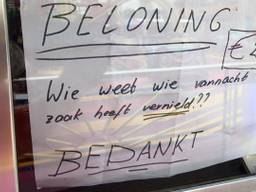 BELONING
€2
Wie weet wie vannacht
zaak heeft vernield??
BEDANKT